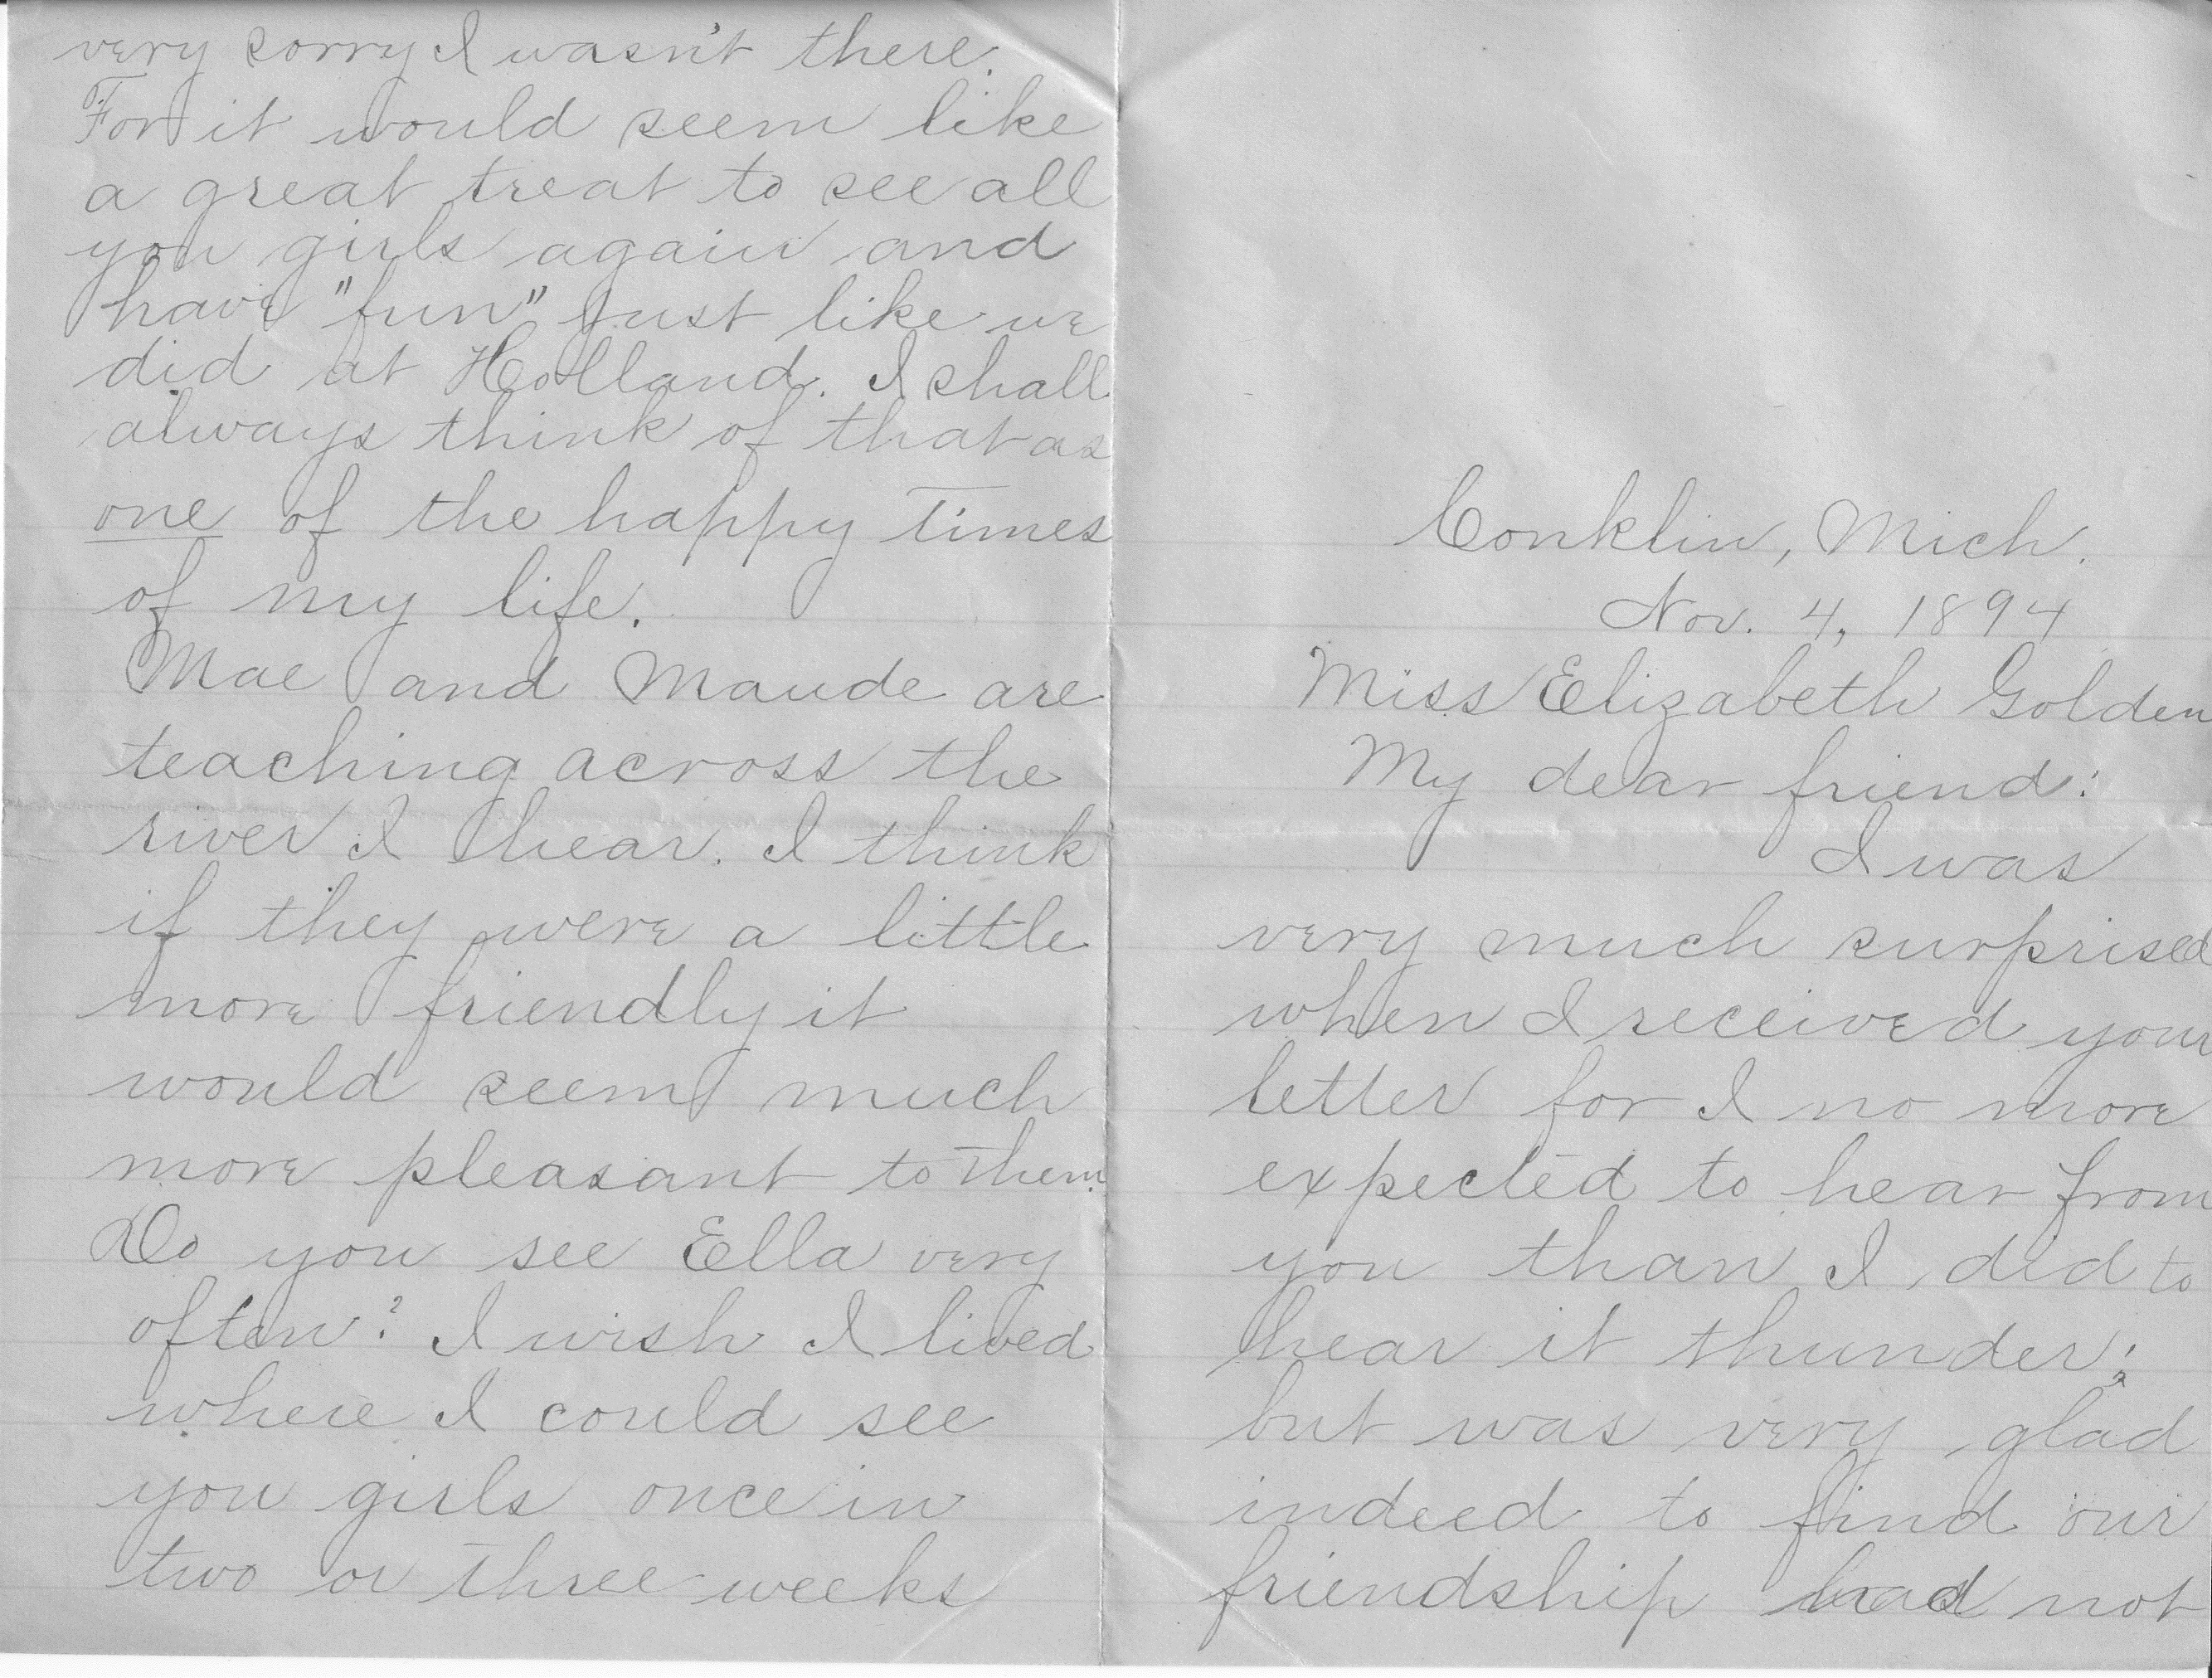 very sorry I wasn't there.
For it would seem like
a great treat to see all
you girls again and
have "fun" just like we
did at Holland. I shall
always think of that as
one of the happy times
of my life.
Mae and Maude are
teaching across the
river I hear. I think
if they were a little
more friendly it
would seem much
more pleasant to them.
Do you see Ella very
often? I wish I lived
where I could see
you girls once in
two or three weeks
Conklin, Mich.
Nov. 4, 1894
Miss Elizabeth Golden
My dear friend:
I was
very much surprised
when I received your
letter for I no more
expected to hear from
you than I did to
hear it thunder;
but was very glad
indeed to find our
friendship had not